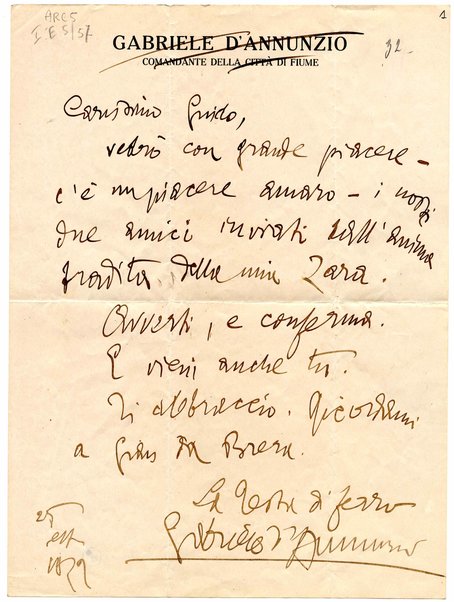 ARC5
I E 5/57
1
GABRIELE D'ANNUNZIO
COMANDANTE DELLA CITTÀ DI FIUME
32-
Carissimo Guido,
vedrò con grande piacere –
c'è un piacere amaro – i nostri
due amici inviati dall'anima
tradita della mia Zara.
Avverti, e conferma.
E vieni anche tu.
Ti abbraccio. Ricordami
a Gian da Brera.
La Testa di ferro
Gabriele d'Annunzio
25